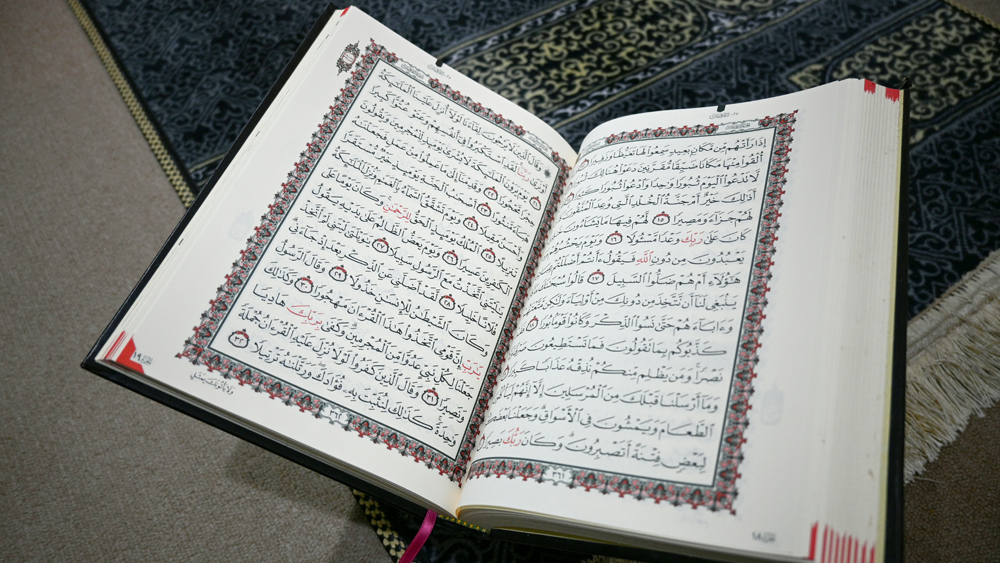 إِذَا رَأَتْهُم مِّن مَّكَانٍ بَعِيدٍ سَمِعُوا۟ لَهَا تَغَيُّظًا وَزَفِيرًا
أُلْقُوا۟ مِنْهَا مَكَانًا ضَيِّقًا مُّقَرَّنِينَ دَعَوْا۟ هُنَالِكَ
لَّا تَدْعُوا۟ ٱلْيَوْمَ ثُبُورًا وَٰحِدًا وَٱدْعُوا۟ ثُبُورًا
أَذَٰلِكَ خَيْرٌ أَمْ جَنَّةُ ٱلْخُلْدِ ٱلَّتِى وُعِدَ ٱلْمُتَّقُونَ
لَهُمْ جَزَآءً وَمَصِيرًا ١٥ لَّهُمْ فِيهَا مَا يَشَآءُونَ
كَانَ عَلَىٰ رَبِّكَ وَعْدًا مَّسْـُٔولًا ١٦ وَيَوْمَ يَحْشُرُهُمْ
يَعْبُدُونَ مِن دُونِ ٱللَّهِ فَيَقُولُ ءَأَنتُمْ أَضْلَلْتُمْ
هَٰٓؤُلَآءِ أَمْ هُمْ ضَلُّوا۟ ٱلسَّبِيلَ ١٧ قَالُوا۟
يَنۢبَغِى لَنَآ أَن نَّتَّخِذَ مِن دُونِكَ مِنْ أَوْلِيَآءَ وَلَٰكِن
وَءَابَآءَهُمْ حَتَّىٰ نَسُوا۟ ٱلذِّكْرَ وَكَانُوا۟ قَوْمًۢا بُورًا ١٨
كَذَّبُوكُم بِمَا تَقُولُونَ فَمَا تَسْتَطِيعُونَ
نَصْرًا وَمَن يَظْلِم مِّنكُمْ نُذِقْهُ عَذَابًا
وَمَآ أَرْسَلْنَا قَبْلَكَ مِنَ ٱلْمُرْسَلِينَ إِلَّآ إِنَّهُمْ
ٱلطَّعَامَ وَيَمْشُونَ فِى ٱلْأَسْوَاقِ وَجَعَلْنَا بَعْضَكُمْ
لِبَعْضٍ فِتْنَةً أَتَصْبِرُونَ وَكَانَ رَبُّكَ بَصِيرًا
٣٦١
وَقَالَ ٱلَّذِينَ لَا يَرْجُونَ لِقَآءَنَا لَوْلَآ أُنزِلَ عَلَيْنَا ٱلْمَلَٰٓئِكَةُ
أَوْ نَرَىٰ رَبَّنَا لَقَدِ ٱسْتَكْبَرُوا۟ فِىٓ أَنفُسِهِمْ وَعَتَوْ عُتُوًّا كَبِيرًا
٢١ يَوْمَ يَرَوْنَ ٱلْمَلَٰٓئِكَةَ لَا بُشْرَىٰ يَوْمَئِذٍ لِّلْمُجْرِمِينَ وَيَقُولُونَ
حِجْرًا مَّحْجُورًا ٢٢ وَقَدِمْنَآ إِلَىٰ مَا عَمِلُوا۟ مِنْ عَمَلٍ فَجَعَلْنَٰهُ
هَبَآءً مَّنثُورًا ٢٣ أَصْحَٰبُ ٱلْجَنَّةِ يَوْمَئِذٍ خَيْرٌ مُّسْتَقَرًّا
وَأَحْسَنُ مَقِيلًا ٢٤ وَيَوْمَ تَشَقَّقُ ٱلسَّمَآءُ بِٱلْغَمَٰمِ وَنُزِّلَ ٱلْمَلَٰٓئِكَةُ
تَنزِيلًا ٢٥ ٱلْمُلْكُ يَوْمَئِذٍ ٱلْحَقُّ لِلرَّحْمَٰنِ وَكَانَ يَوْمًا عَلَى
ٱلْكَٰفِرِينَ عَسِيرًا ٢٦ وَيَوْمَ يَعَضُّ ٱلظَّالِمُ عَلَىٰ يَدَيْهِ يَقُولُ
يَٰلَيْتَنِى ٱتَّخَذْتُ مَعَ ٱلرَّسُولِ سَبِيلًا ٢٧ يَٰوَيْلَتَىٰ لَيْتَنِى لَمْ أَتَّخِذْ
فُلَانًا خَلِيلًا ٢٨ لَّقَدْ أَضَلَّنِى عَنِ ٱلذِّكْرِ بَعْدَ إِذْ جَآءَنِى
وَكَانَ ٱلشَّيْطَٰنُ لِلْإِنسَٰنِ خَذُولًا ٢٩ وَقَالَ ٱلرَّسُولُ
يَٰرَبِّ إِنَّ قَوْمِى ٱتَّخَذُوا۟ هَٰذَا ٱلْقُرْءَانَ مَهْجُورًا ٣٠ وَكَذَٰلِكَ
جَعَلْنَا لِكُلِّ نَبِىٍّ عَدُوًّا مِّنَ ٱلْمُجْرِمِينَ وَكَفَىٰ بِرَبِّكَ هَادِيًا
وَنَصِيرًا ٣١ وَقَالَ ٱلَّذِينَ كَفَرُوا۟ لَوْلَا نُزِّلَ عَلَيْهِ ٱلْقُرْءَانُ جُمْلَةً
وَٰحِدَةً كَذَٰلِكَ لِنُثَبِّتَ بِهِۦ فُؤَادَكَ وَرَتَّلْنَٰهُ تَرْتِيلًا ٣٢
٣٦٢